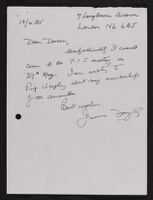 19/4/85
7 Langdowne Avenue
London N6 6AJ
Dear Doreen,
Unfortunately I cannot
come to the P.I.C meeting on
29th May. I am writing to
Prof about my membership
of the committee
Best wishes